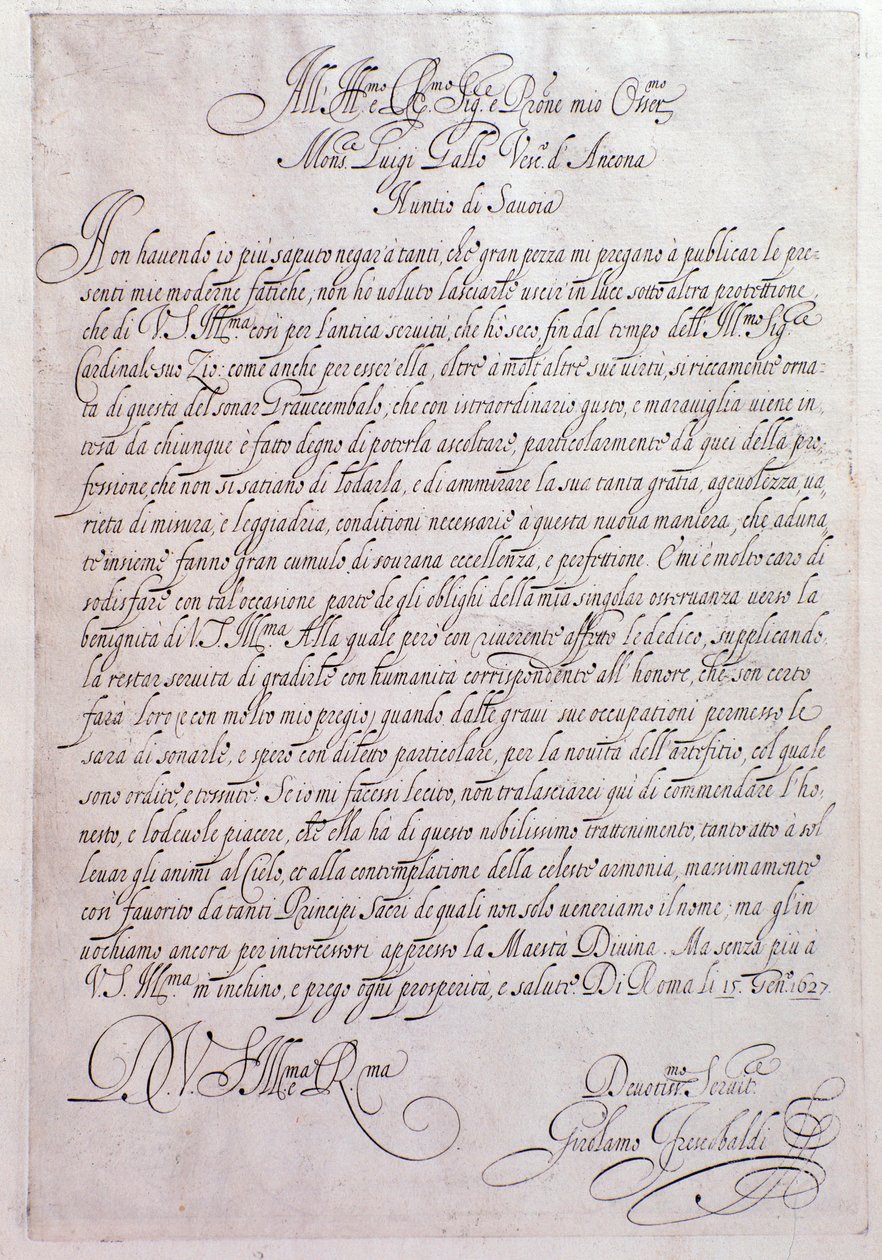 All' Ill.mo e R.mo Sig.re e Prone mio Osser.mo
Mons.re Luigi Gallo Vesc.o d' Ancona
Nuntio di Sauoia
Non hauendo io più saputo negar à tanti, che gran pezza mi pregano à publicar le pre=
senti mie moderne fatiche, non hò voluto lasciarle uscir in luce sotto altra protettione,
che di V.S. Ill.ma così per l'antica seruitù, che hò seco, fin dal tempo dell' Ill.mo Sig.re
Cardinale suo Zio: come anche per esser'ella, oltre à molt'altre sue virtù, si riccamente orna-
ta di questa del sonar Grauecembalo, che con istraordinario gusto, e marauiglia viene in,
tesa da chiunque è fatto degno di poterla ascoltare, particolarmente da quei della pro=
fessione, che non si satiano di lodarla, e di ammirare la sua tanta gratia, ageuolezza, ua=
rietà di misura, e leggiadria, conditioni necessarie à questa nuoua maniera, che aduna=
te insieme fanno gran cumulo di sourana eccellenza, e perfettione. E mi è molto caro di
sodisfare con tal'occasione parte de gli oblighi della mia singolar osseruanza verso la
benignità di V.S. Ill.ma Alla quale però con riuerente affetto le dedico, supplicando,
la restar seruita di gradirle con humanità corrispondente all' honore, che son certo
farà loro (e con molto mio pregio) quando dalle graui sue occupationi permesso le
sarà di sonarle, e spero con diletto particolare, per la nouità dell'artefitio, col quale
sono ordite, e tessute. Se io mi facessi lecito, non tralasciarei quì di commendare l'ho,
nesto, e lodeuole piacere, che ella hà di questo nobilissimo trattenimento, tanto atto à sol
leuar gli animi al Cielo, et alla contemplatione della celeste armonia, massimamente
così fauorito da tanti Principi Sacri de quali non solo ueneriamo il nome; ma gl'in
uochiamo ancora per intercessori appresso la Maestà Diuina. Ma senza più à
V.S. Ill.ma m'inchino, e prego ogni prosperità, e salute. Di Roma li 15. Gen.o 1627.
D.V.S. Ill.ma e R.ma
Deuotiss.mo Seruit.re
Girolamo Frescobaldi